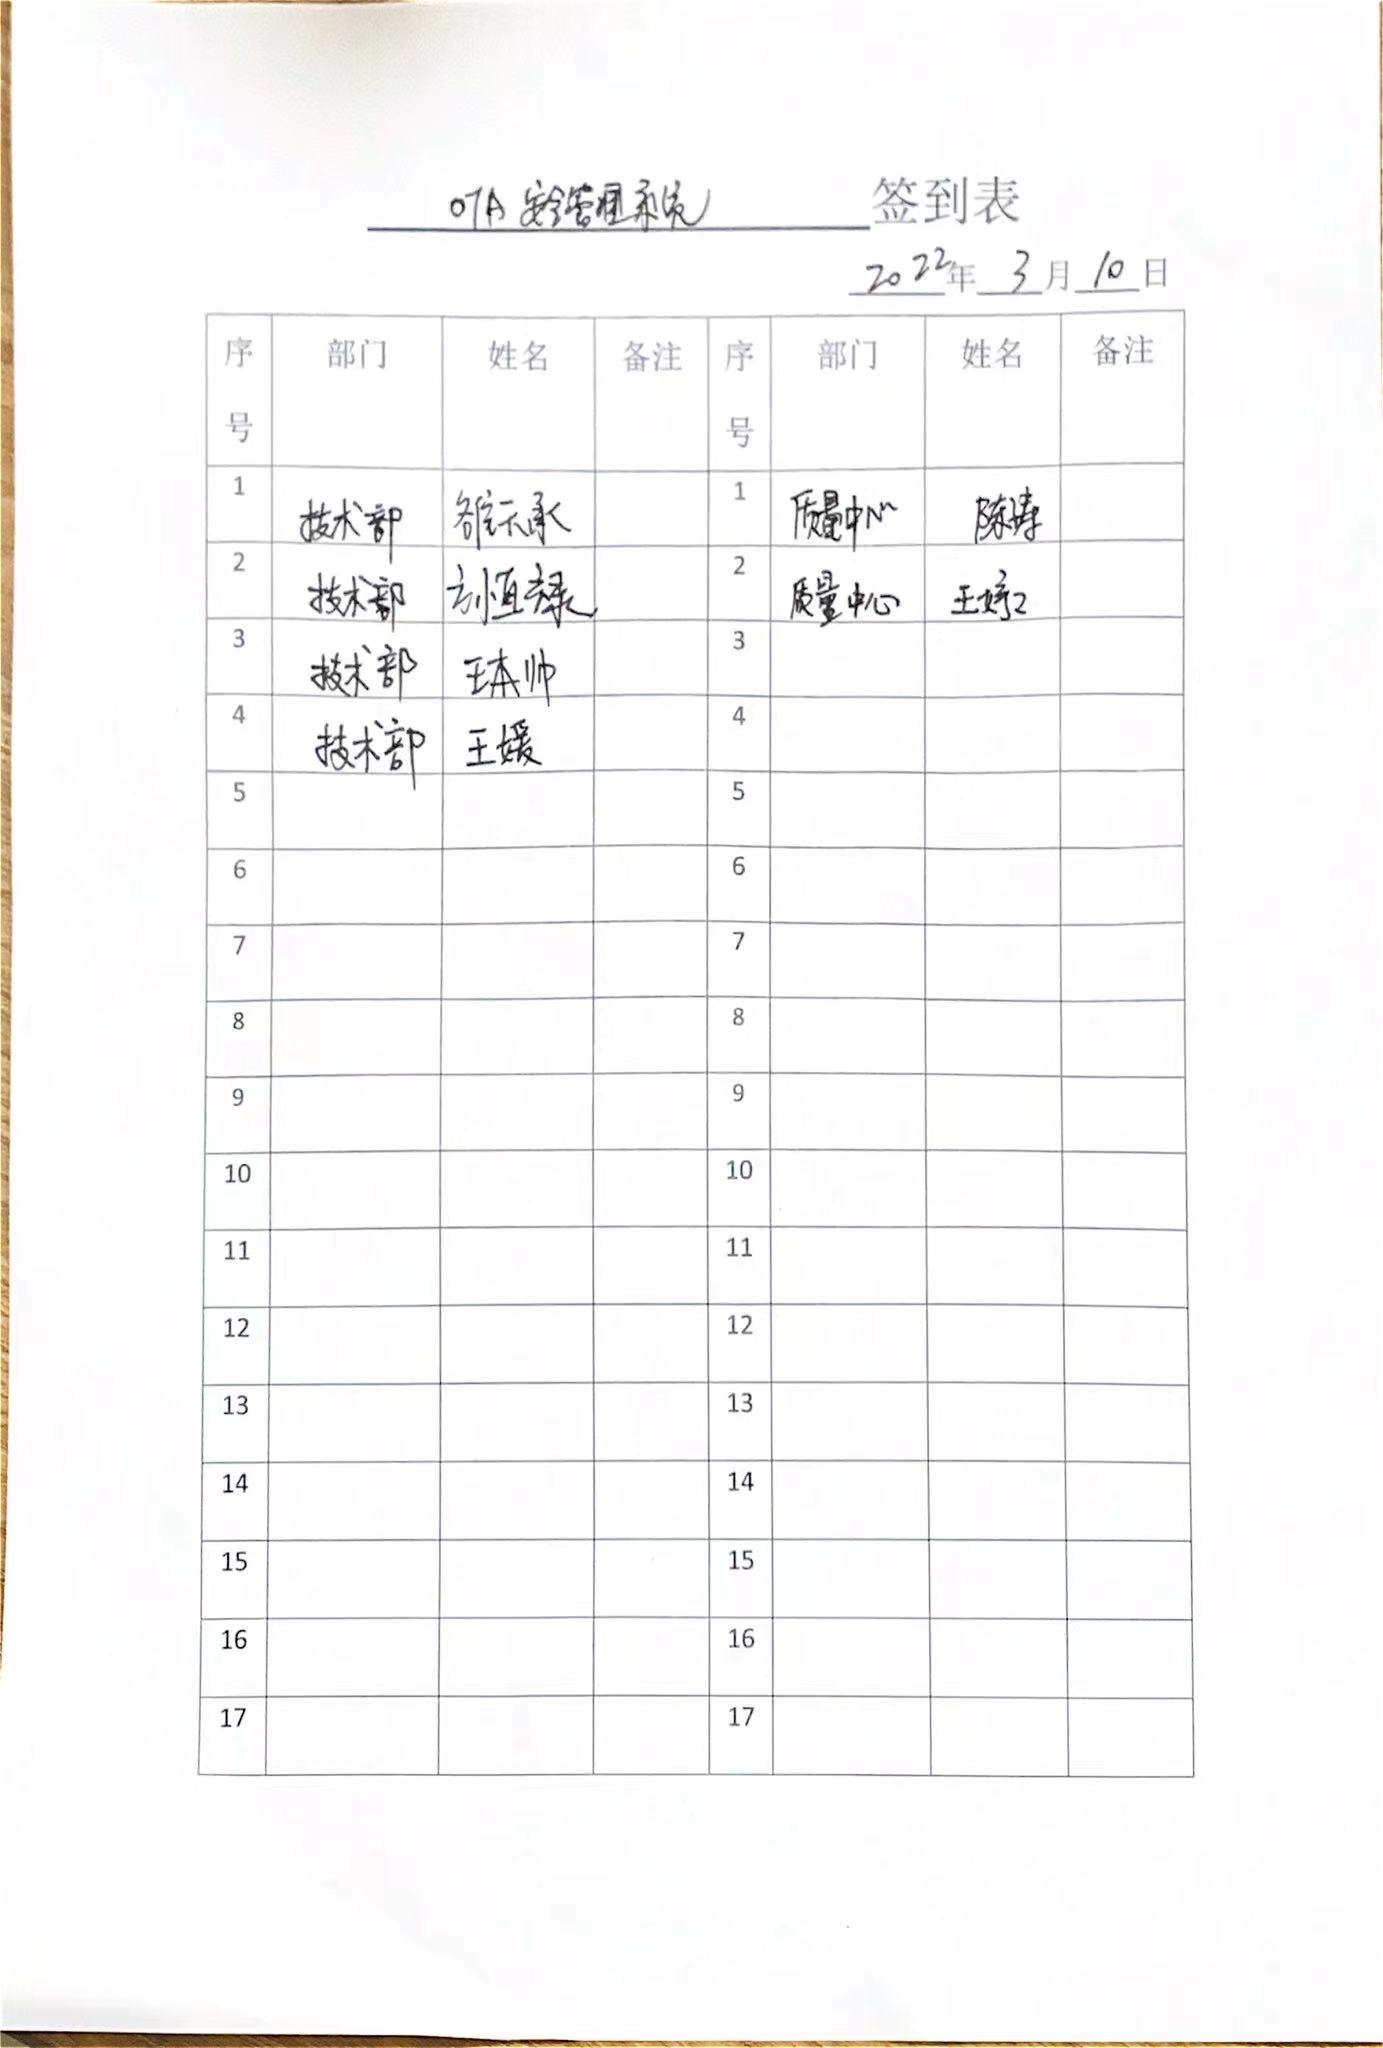 OTA 安全管理系统 签到表
2022年 3月 10日
序号 部门 姓名 备注 序号 部门 姓名 备注
1 技术部 1 质量中心 陈涛
2 技术部 2 质量中心 王婷
3 技术部 王本帅 3
4 技术部 王媛 4
5 5
6 6
7 7
8 8
9 9
10 10
11 11
12 12
13 13
14 14
15 15
16 16
17 17